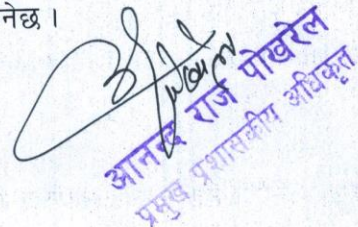 नेछ ।
आनन्द राज पोखरेल
प्रमुख प्रशासकीय अधिकृत